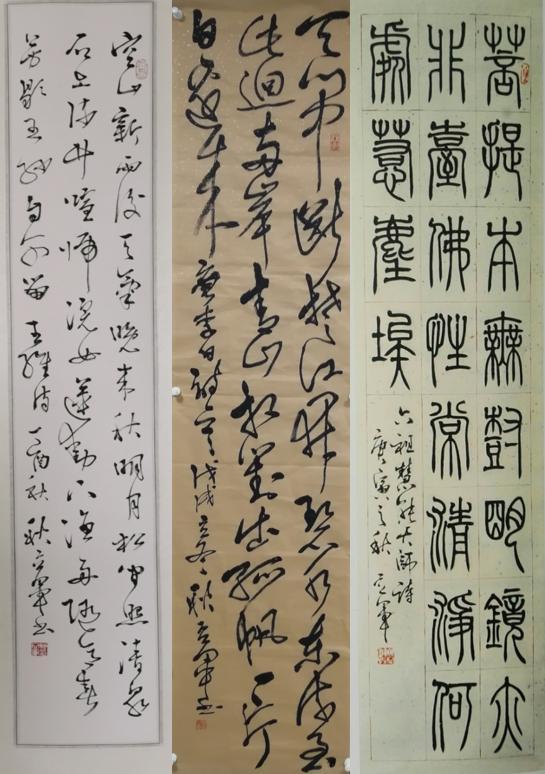 菩提本無樹明鏡亦
非臺佛性常清淨何
處惹塵埃
六祖慧能大師詩
庚寅之秋 立軍
天門中斷楚江開碧水東流至
此迴兩岸青山相對出孤帆一片
日邊來 唐李白詩 戊戌立冬 立軍書
空山新雨後天氣晚來秋明月松間照清泉
石上流竹喧歸浣女蓮動下漁舟隨意春
芳歇王孫自可留 王維詩 丁酉秋 立軍書